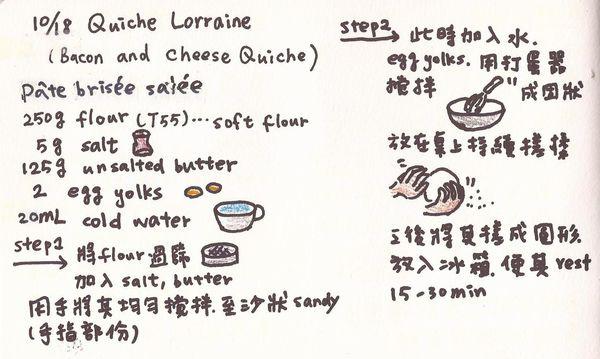 10/18 Quiche Lorraine
(Bacon and Cheese Quiche)
Pâte brisée salée
250g flour (T55)...soft flour
5g salt
125g unsalted butter
2 egg yolks
20mL cold water
step1 將flour過篩
加入 salt, butter
用手將其均勻攪拌.至沙狀 sandy
(手指部份)
step2 此時加入水.
egg yolks. 用打蛋器
攪拌 成団狀
放在桌上持續搓揉
後將其搓成圓形.
放入冰箱.使其 rest
15-30min